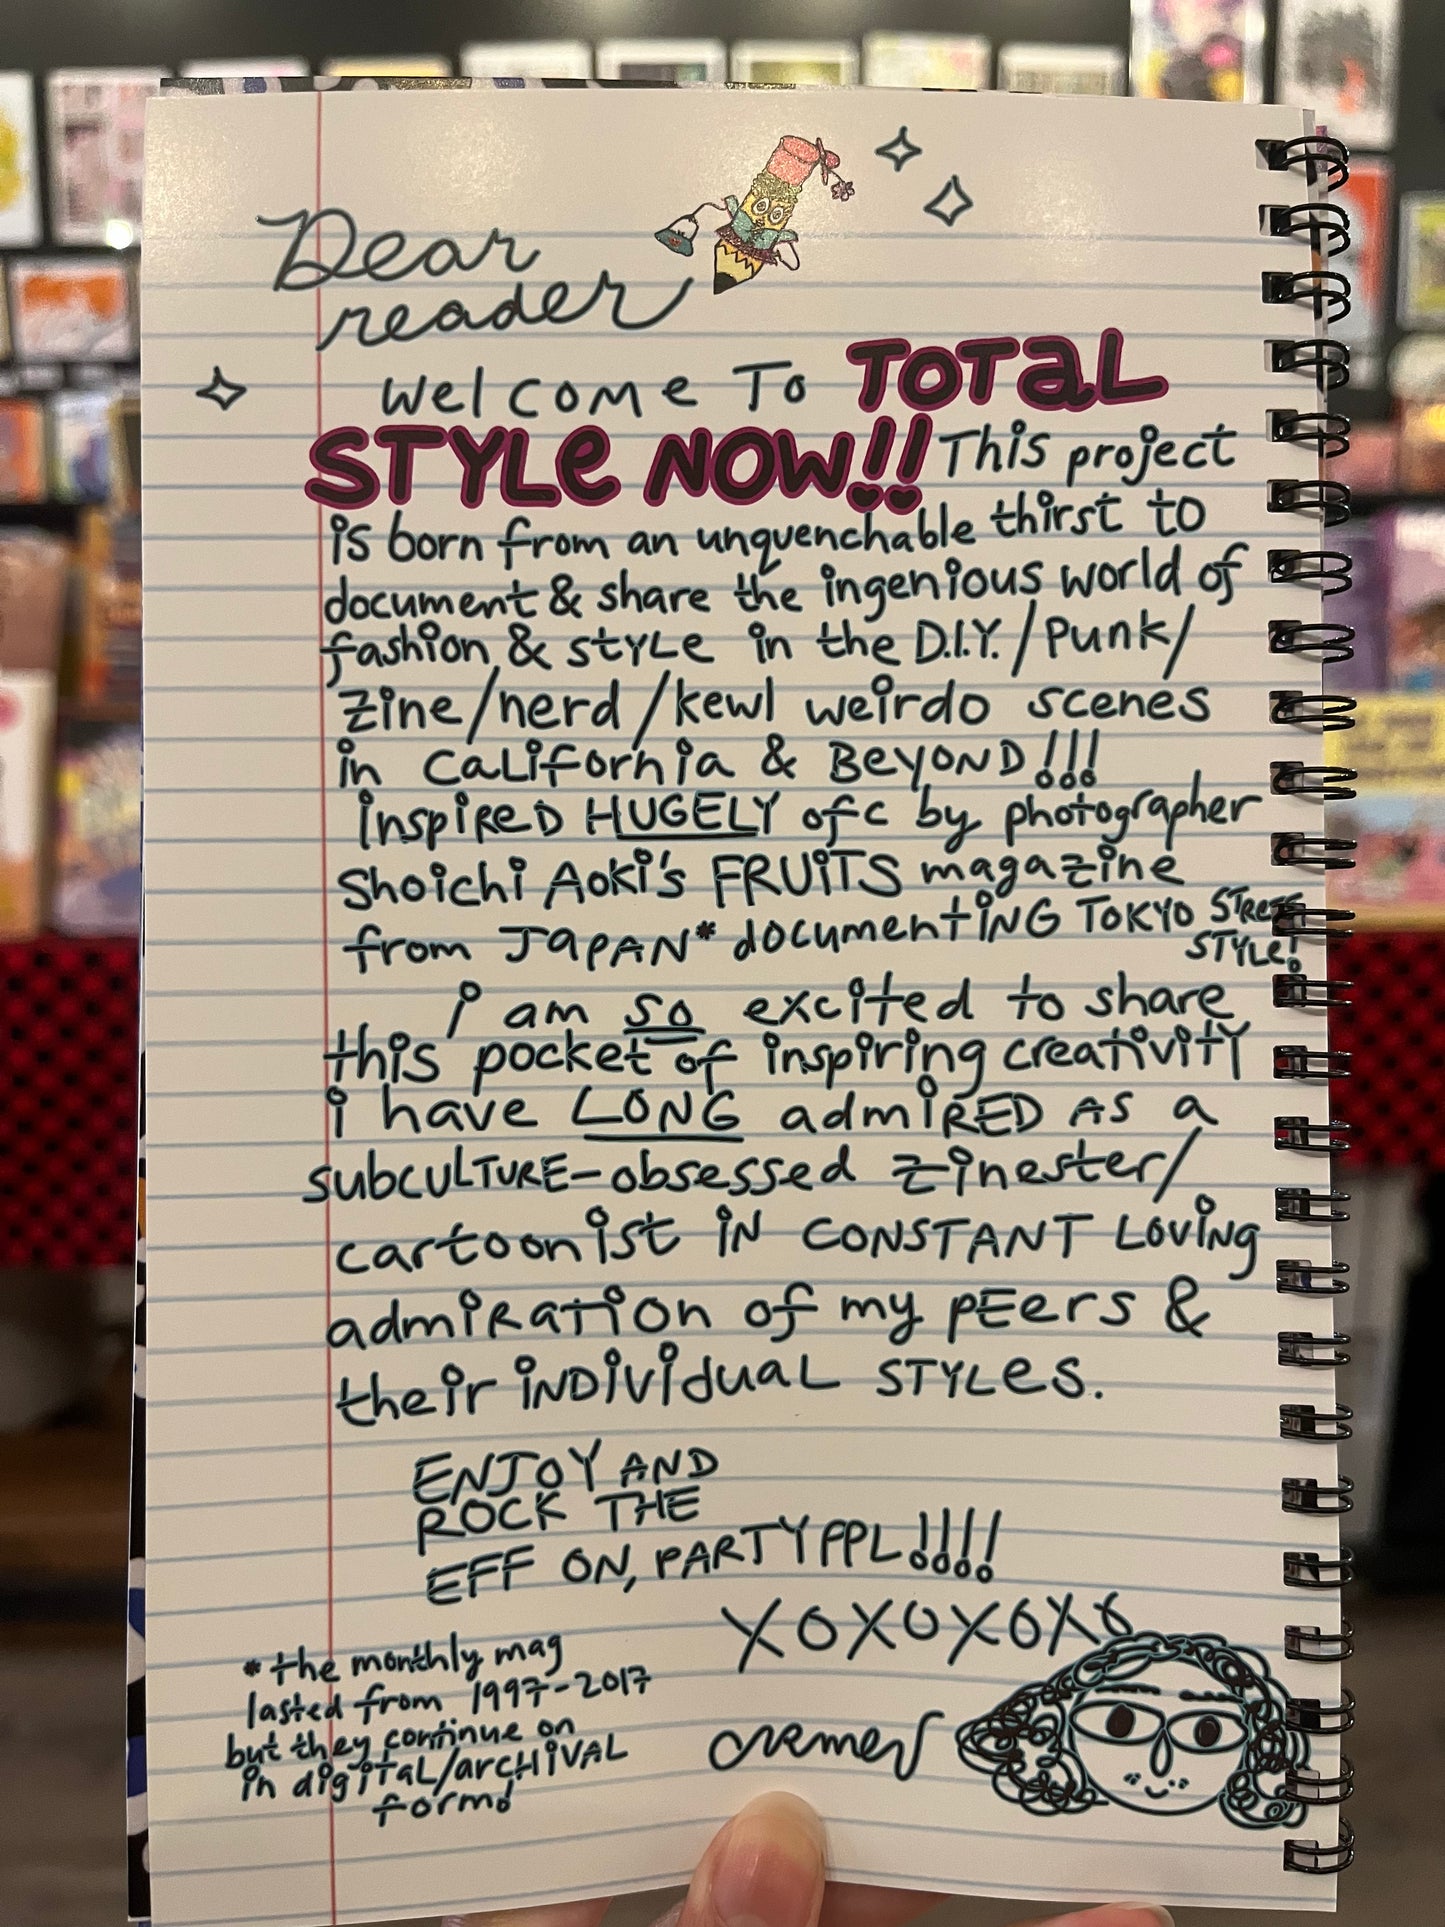 Dear
reader
Welcome To TOTAL
STYLe NOW!! This project
is born from an unquenchable thirst to
document & share the ingenious world of
fashion & STYLe in the D.I.Y. / Punk /
Zine / nerd / kewl weirdo scenes
in CaLifornia & BeYOND!!!
inspiReD HUGELY ofc by photographer
Shoichi Aoki's FRUiTS magazine
from JAPAN* documenTiNG TOKYO STReeT
STYLe!
i am so excited to share
this pocket of inspiring creativity
i have LONG admiRED AS a
subcULTURE-obsessed zinester/
cartoonist iN CONSTANT LoviNg
admiRaTion of my pEers &
their iNDiViduaL STYLes.
ENJOY AND
ROCK THE
EFF ON, PARTY PPL!!!!
XOXOXOXO
*the monthly mag
lasted from 1997-2017
but they continue on
in digiTaL/arcHiVAL
form!